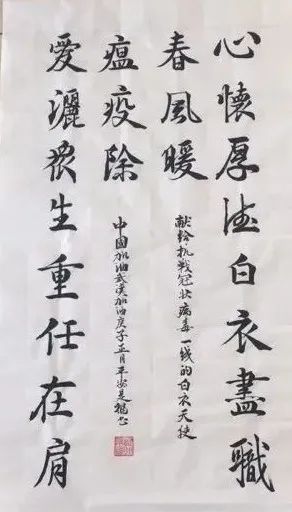 心懷厚德白衣盡職
春風暖
献给抗戰冠状病毒一线的白衣天使
瘟疫除
中國加油武漢加油庚子正月平安
愛灑衆生重任在肩